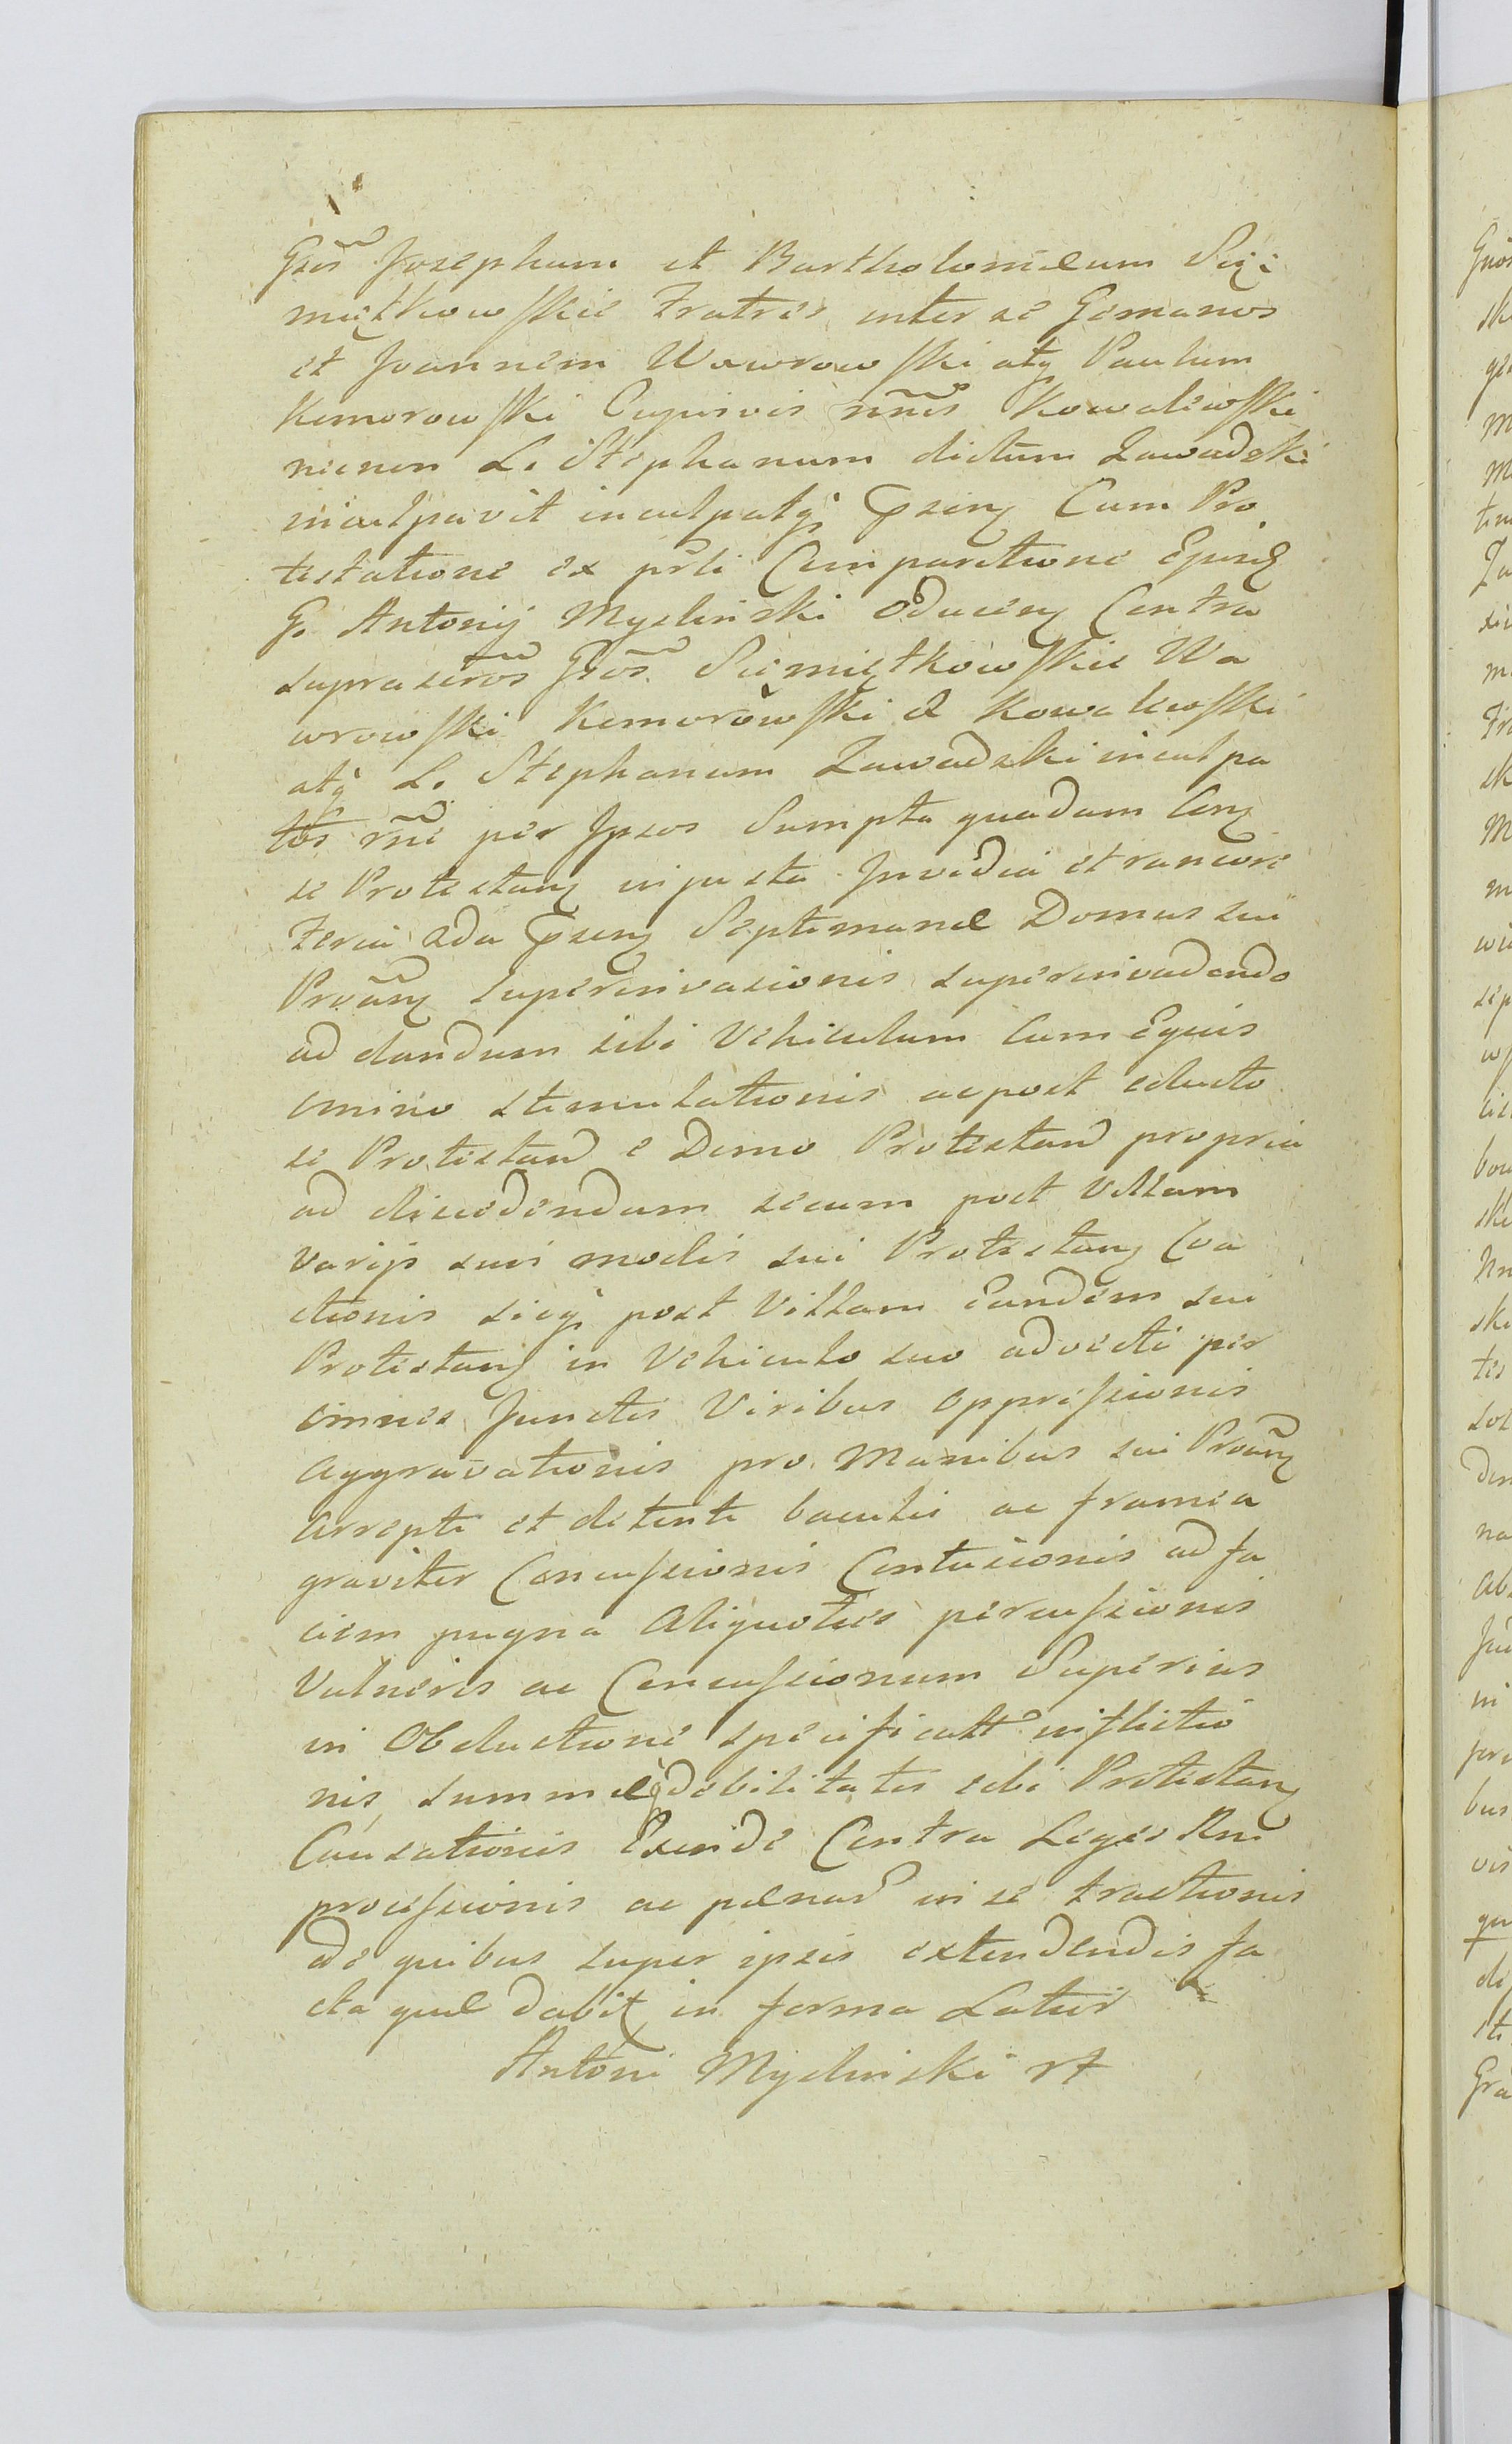 Gsos Josephum et Bartholomæum Sie
miętkowskie Fratres inter se Germanos
et Joannem Wawrowski atq Paulum
Komorowski Cujusvis nnis Kowalewski
necnon L. Stephanum dictum Zawadzki
inculpavit inculpatq psenz Cum Pro
testatione ex prli Comparitione Ejusd
G. Antonij Mysliński oducenz Contra
suprascros Gsos Siemiętkowskie Wa
wrowski Komorowski & Kowalewski
atq L. Stephanum Zawadzki inculpa
tos rne per Ipsos Sumpta quadam Conz
se Protestanz injusta Invidia et rancore
Feria 2da psenz Septimanæ Domus sui
Proanz superinvasionis superinvadendo
ad dandum sibi Vehiculum Cum Equis
omino stimulationis ac post educto
se Protestand e Domo Protestand propria
ad discedendum secum post Villam
varijs suis modis sui Protestanz Coa
ctionis sicq post Villam Eundem sui
Protestanz in Vehiculo suo advecti per
omnes Junctis Viribus oppressionis
Aggravationis pro Manibus sui Proanz
arrepti et detenti baculis ac framea
graviter Concussionis Contusionis ad fa
ciem pugna Aliquoties percussionis
Vulneris ac Concussionum Superius
in Obductione specificatt inflictio
nis summæq debilitatis sibi Protestanz
Causationis Exinde Contra Leges Rni
processionis ac pænar in se tractionis
de quibus super ipsis extendendis fa
cta quæ dabit in forma Latior
Antoni Mysliński